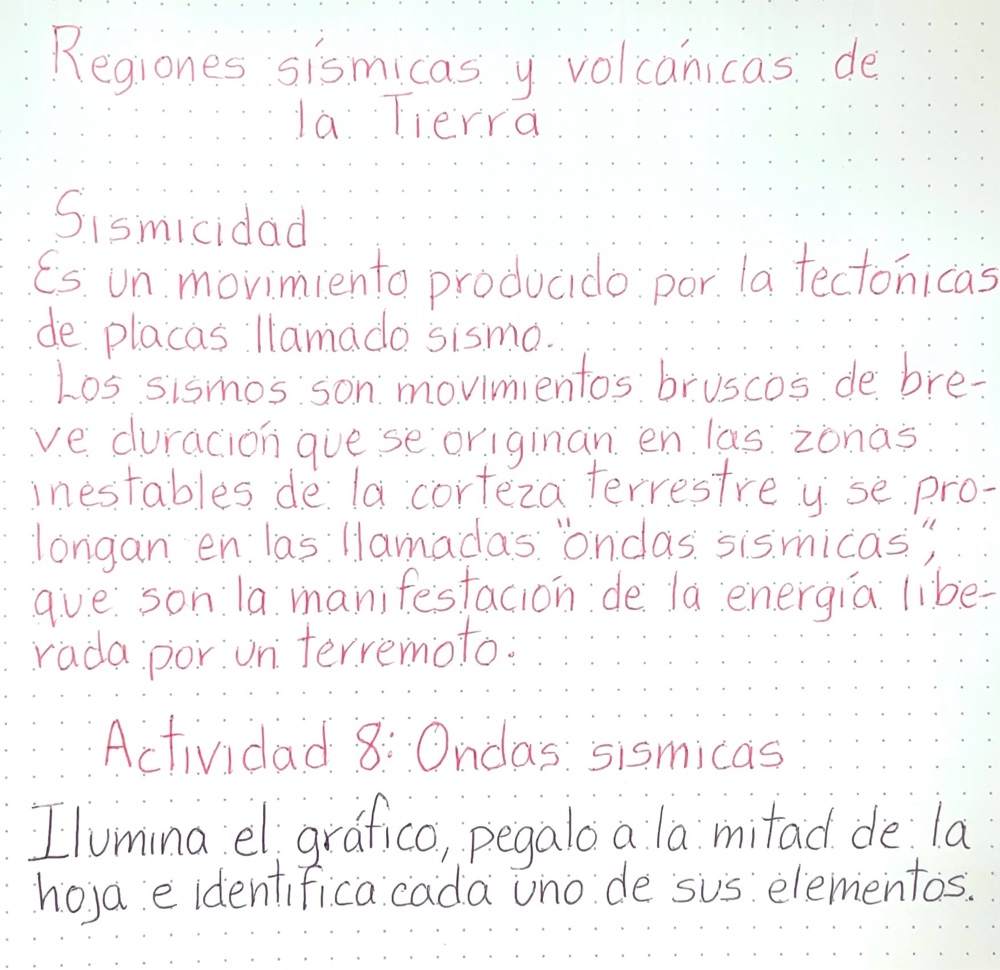 Regiones sísmicas y volcánicas de
la Tierra
Sismicidad
Es un movimiento producido por la tectónicas
de placas llamado sismo.
Los sismos son movimientos bruscos de bre-
ve duración que se originan en las zonas
inestables de la corteza terrestre y se pro-
longan en las llamadas "ondas sismicas",
que son la manifestación de la energía libe-
rada por un terremoto.
Actividad 8: Ondas sismicas
Ilumina el gráfico, pegalo a la mitad de la
hoja e identifica cada uno de sus elementos.